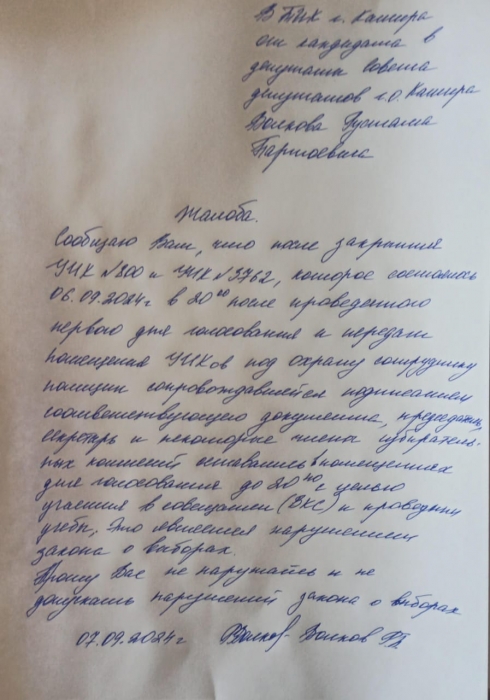 В ТИК г. Кашира
от кандидата в
депутаты Совета
депутатов г.о. Кашира
Волкова Рустама
Жалоба.
Сообщаю Вам, что после закрытия
УИК №800 и УИК №3762, которое состоялось
06.09.2024г в 20⁰⁰ после проведенного
первого дня голосования и передачи
помещения УИКов под охрану сотруднику
полиции сопровождавшейся подписанием
соответствующего документа, председатель,
секретарь и некоторые члены избиратель-
ных комиссий оставались в помещениях
для голосования до 20⁴⁰ с целью
участия в совещании (ВКС) и проведении
учебы. Это является нарушением
закона о выборах.
Прошу Вас не нарушать и не
допускать нарушений закона о выборах
07.09.2024г Волков